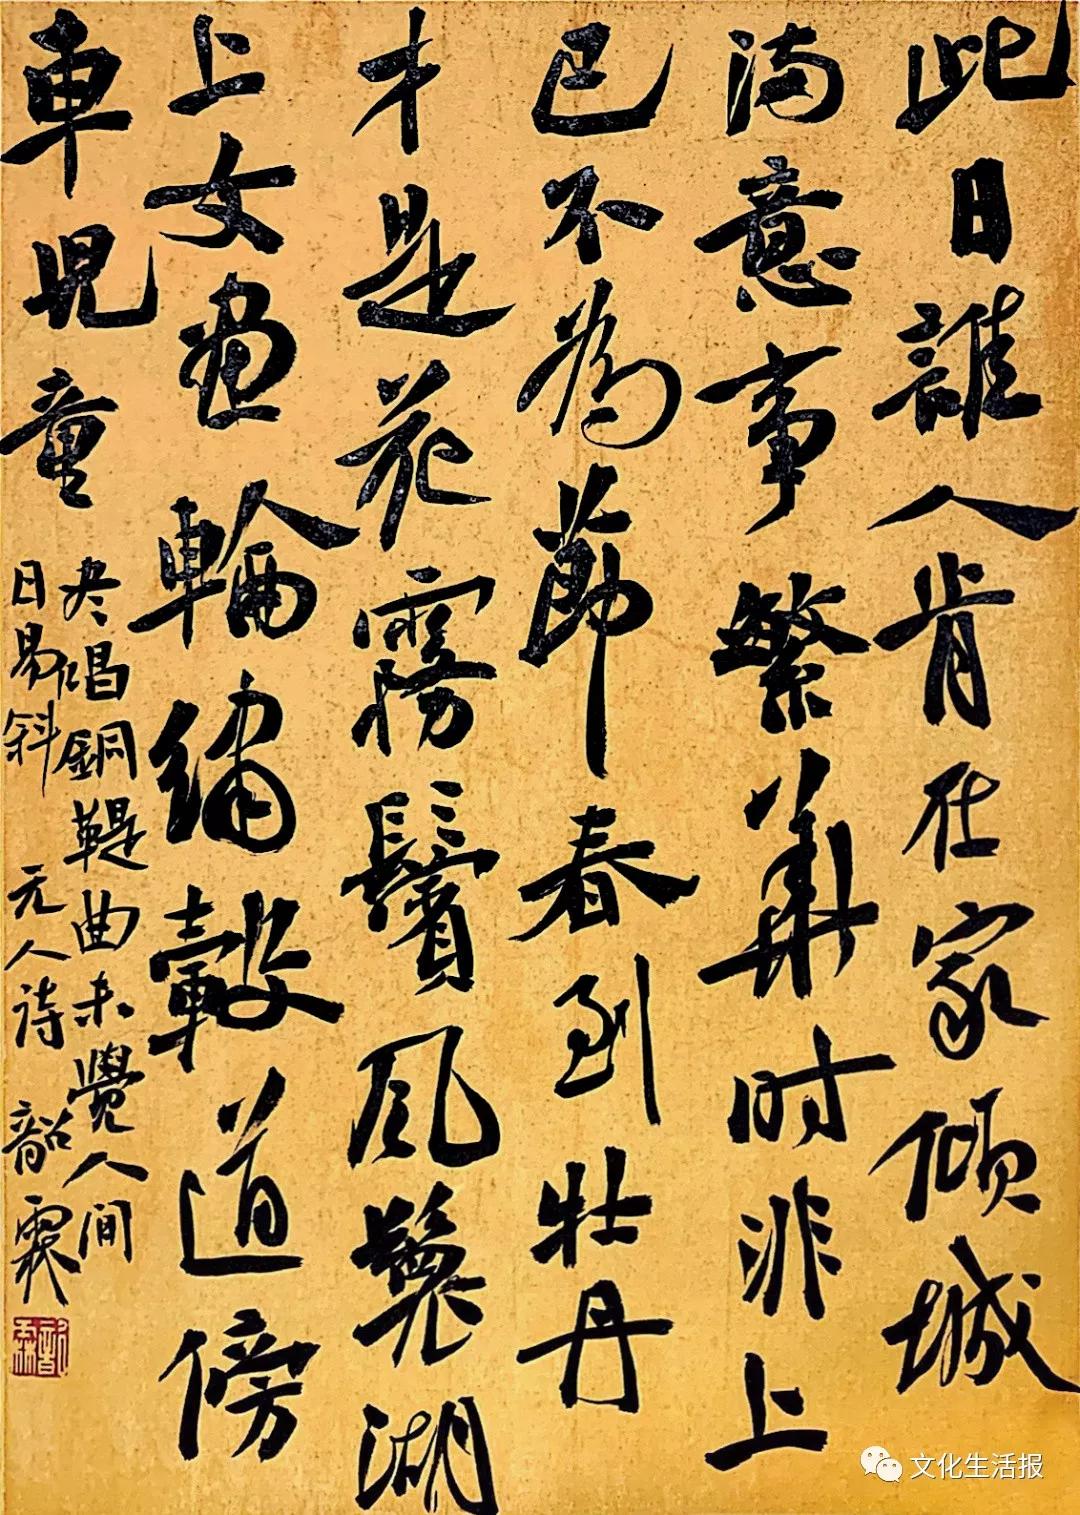 此日誰人肯在家傾城
满意事繁華时非上
已不為節春到牡丹
才是花霧鬢風鬟湖
上女画輪繡轂道傍
車児童
尽唱銅鞮曲未覺人间
日易斜 元人诗 韶霖
文化生活报